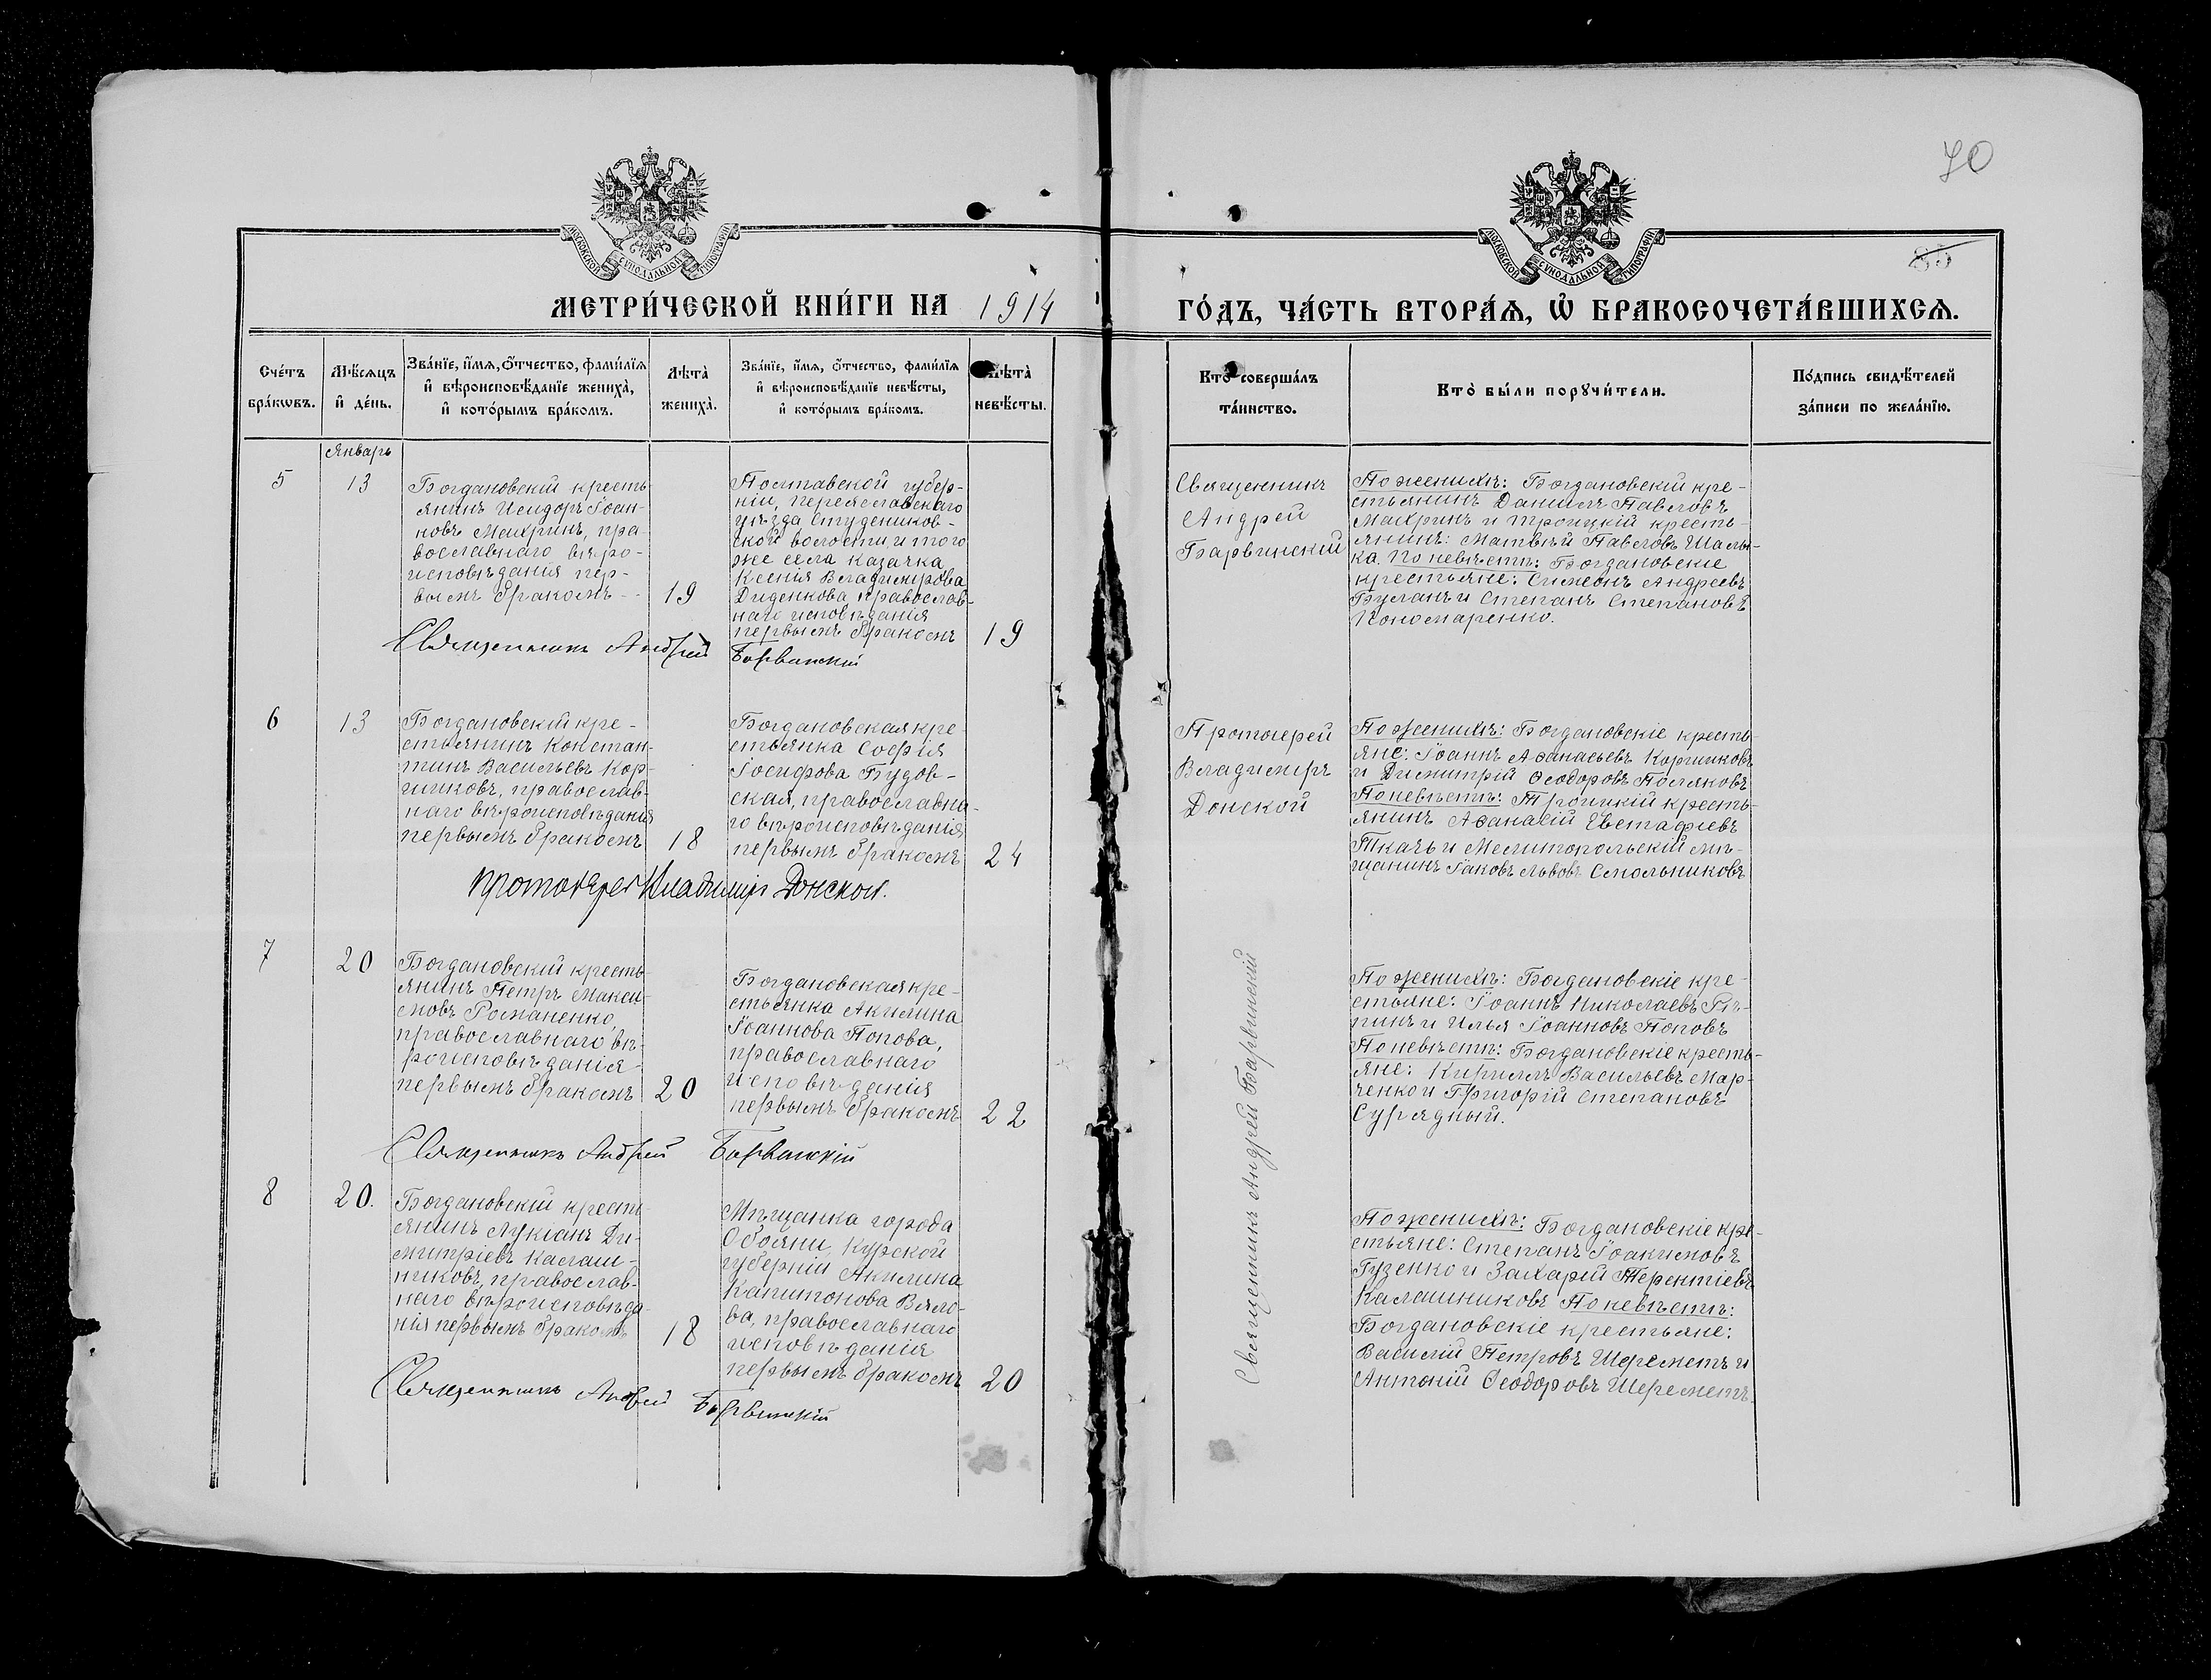 70
85
МОСКОВСКОЙ СѴНОДАЛЬНОЙ ТИПОГРАФІИ
МОСКОВСКОЙ СѴНОДАЛЬНОЙ ТИПОГРАФІИ
МЕТРИ́ЧЕСКОЙ КНИ́ГИ НА 1914
ГО́ДЪ, ЧА́СТЬ ВТОРА́Я, Ѡ҆ БРАКОСОЧЕТА́ВШИХСЯ.
Сче́тъ
бра́кѡвъ.
Мѣ́сяцъ
и҆ де́нь.
Зва́нїе, и҆́мя, ѻ҆́тчество, фами́лїя
и҆ вѣроисповѣ́данїе жениха̀,
и҆ кото́рымъ бра́комъ.
Лѣта̀
жениха̀.
Зва́нїе, и҆́мя, ѻ҆́тчество, фами́лїя
и҆ вѣроисповѣ́данїе невѣ́сты,
и҆ кото́рымъ бра́комъ.
Лѣта̀
невѣ́сты.
Кто̀ соверша́лъ
та́инство.
Кто̀ бы́ли порꙋчи́тели.
По́дпись свидѣ́телей
за́писи по жела́нїю.
Январь
5
13
Богдановскій кресть-
янинъ Исидоръ Іоан-
новъ Махринъ, пра-
вославнаго вѣро-
исповѣданія пер-
вымъ бракомъ --
19
Полтавской губер-
ніи, Переяславскаго
уѣзда Студеников-
ской волости, и того
же села казачка
Ксенія Владимірова
Диденкова православ-
наго исповѣданія
первымъ бракомъ
19
Священникъ
Андрей
Барвинскій
По женихѣ: Богдановскій кре-
стьянинъ Даніилъ Павловъ
Махринъ и Троицкій кресть-
янинъ: Матвѣй Павловъ Шаль-
ка. По невѣстѣ: Богдановскіе
крестьяне: Симеонъ Андреевъ
Буланъ и Степанъ Степановъ
Пономаренко.
Священникъ Андрей Барвинскій
6
13
Богдановскій кре-
стьянинъ Констан-
тинъ Васильевъ Кор-
шиковъ, православ-
наго вѣроисповѣданія
первымъ бракомъ
18
Богдановская кре-
стьянка Софія
Іосифова Будов-
ская, православна-
го вѣроисповѣданія
первымъ бракомъ
24
Протоіерей
Владиміръ
Донской
По женихѣ: Богдановскіе кресть-
яне: Іоаннъ Аѳанасьевъ Коршиковъ
и Димитрій Ѳеодоровъ Поляковъ
По невѣстѣ: Троицкій кресть-
янинъ Аѳанасій Евстафіевъ
Ткачъ и Мелитопольскій мѣ-
щанинъ Іаковъ Львовъ Смольниковъ
Протоіерей Владиміръ Донской.
7
20
Богдановскій кресть-
янинъ Петръ Макси-
мовъ Романенко,
православнаго вѣ-
роисповѣданія
первымъ бракомъ
20
Богдановская кре-
стьянка Акилина
Іоаннова Попова,
православнаго
исповѣданія
первымъ бракомъ
22
Священникъ Андрей Барвинскій
По женихѣ: Богдановскіе кре-
стьяне: Іоаннъ Николаевъ Рѣ-
пинъ и Илья Іоанновъ Поповъ
По невѣстѣ: Богдановскіе кресть-
яне: Кириллъ Васильевъ Мар-
ченко и Григорій Степановъ
Сурядный.
Священникъ Андрей Барвинскій
8
20.
Богдановскій кресть-
янинъ Лукіанъ Ди-
митріевъ Калаш-
никовъ, православ-
наго вѣроисповѣда-
нія первымъ бракомъ
18
Мѣщанка города
Обояни, Курской
губерніи Акилина
Капитонова Вяло-
ва, православнаго
исповѣданія
первымъ бракомъ
20
По женихѣ: Богдановскіе кре-
стьяне: Степанъ Іоакимовъ
Гузенко и Захарій Терентіевъ
Калашниковъ По невѣстѣ:
Богдановскіе крестьяне:
Василій Петровъ Шереметъ и
Антоній Ѳеодоровъ Шереметъ.
Священникъ Андрей Барвинскій